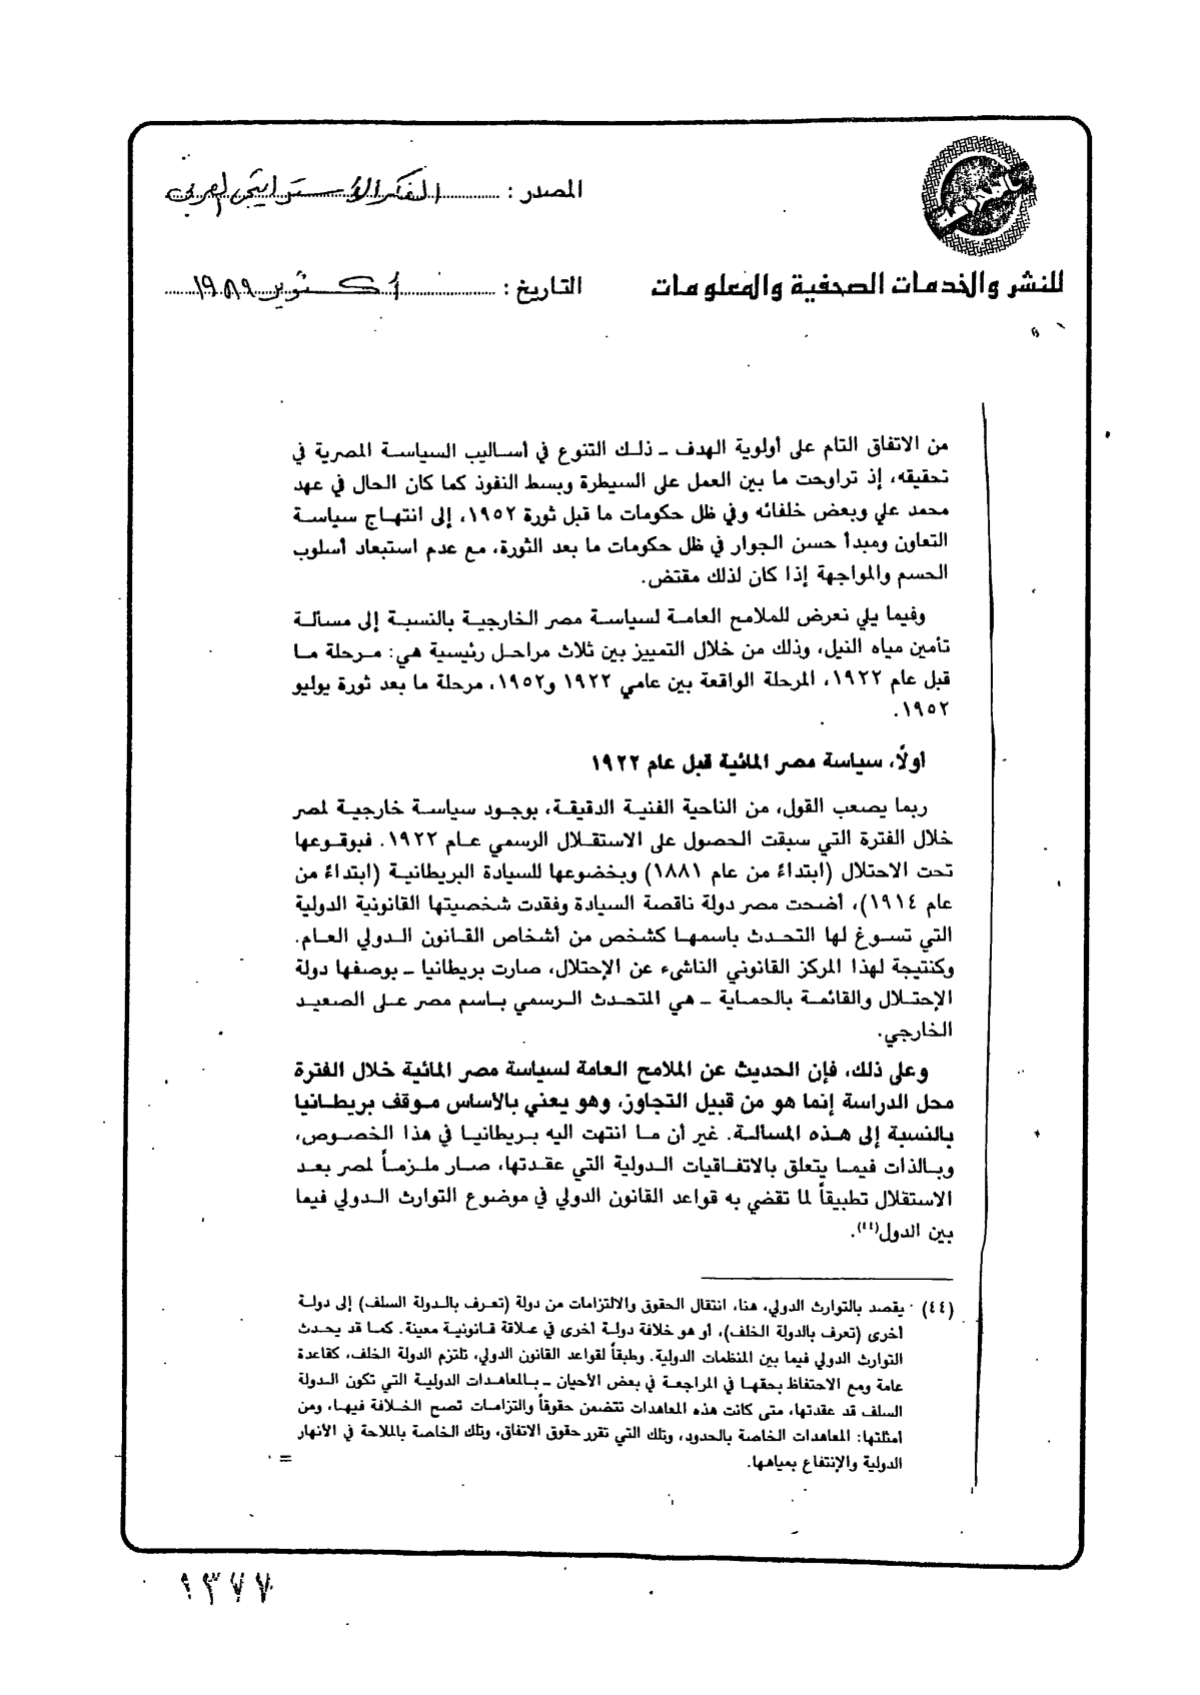 المصدر : الفكر الاستراتيجي العربي
للنشر والخدمات الصحفية والمعلومات
التاريخ : أكتوبر ١٩٨٩
من الاتفاق التام على أولوية الهدف ـ ذلك التنوع في أساليب السياسة المصرية في
تحقيقه، إذ تراوحت ما بين العمل على السيطرة وبسط النفوذ كما كان الحال في عهد
محمد علي وبعض خلفائه وفي ظل حكومات ما قبل ثورة ١٩٥٢، إلى انتهاج سياسة
التعاون ومبدأ حسن الجوار في ظل حكومات ما بعد الثورة، مع عدم استبعاد أسلوب
الحسم والمواجهة إذا كان لذلك مقتض.
وفيما يلي نعرض للملامح العامة لسياسة مصر الخارجية بالنسبة إلى مسألة
تأمين مياه النيل، وذلك من خلال التمييز بين ثلاث مراحل رئيسية هي: مرحلة ما
قبل عام ١٩٢٢، المرحلة الواقعة بين عامي ١٩٢٢ و١٩٥٢، مرحلة ما بعد ثورة يوليو
١٩٥٢.
أولاً، سياسة مصر المائية قبل عام ١٩٢٢
ربما يصعب القول، من الناحية الفنية الدقيقة، بوجود سياسة خارجية لمصر
خلال الفترة التي سبقت الحصول على الاستقلال الرسمي عام ١٩٢٢. فبوقوعها
تحت الاحتلال (ابتداءً من عام ١٨٨١) وبخضوعها للسيادة البريطانية (ابتداءً من
عام ١٩١٤)، أضحت مصر دولة ناقصة السيادة وفقدت شخصيتها القانونية الدولية
التي تسوغ لها التحدث باسمها كشخص من أشخاص القانون الدولي العام.
وكنتيجة لهذا المركز القانوني الناشيء عن الإحتلال، صارت بريطانيا ـ بوصفها دولة
الإحتلال والقائمة بالحماية ـ هي المتحدث الرسمي باسم مصر على الصعيد
الخارجي.
وعلى ذلك، فإن الحديث عن الملامح العامة لسياسة مصر المائية خلال الفترة
محل الدراسة إنما هو من قبيل التجاوز، وهو يعني بالأساس موقف بريطانيا
بالنسبة إلى هذه المسالة. غير أن ما انتهت اليه بريطانيا في هذا الخصوص،
وبالذات فيما يتعلق بالاتفاقيات الدولية التي عقدتها، صار ملزماً لمصر بعد
الاستقلال تطبيقاً لما تقضي به قواعد القانون الدولي في موضوع التوارث الدولي فيما
بين الدول(٤٤).
(٤٤) يقصد بالتوارث الدولي، هنا، انتقال الحقوق والالتزامات من دولة (تعرف بالدولة السلف) إلى دولة
أخرى (تعرف بالدولة الخلف)، أو هو خلافة دولة أخرى في علاقة قانونية معينة. كما قد يحدث
التوارث الدولي فيما بين المنظمات الدولية. وطبقاً لقواعد القانون الدولي، تلتزم الدولة الخلف، كقاعدة
عامة ومع الاحتفاظ بحقها في المراجعة في بعض الأحيان ـ بالمعاهدات الدولية التي تكون الدولة
السلف قد عقدتها، متى كانت هذه المعاهدات تتضمن حقوقاً والتزامات تصح الخلافة فيها، ومن
أمثلتها: المعاهدات الخاصة بالحدود، وتلك التي تقرر حقوق الاتفاق، وتلك الخاصة بالملاحة في الأنهار
الدولية والإنتفاع بمياهها.
=
١٣٧٧